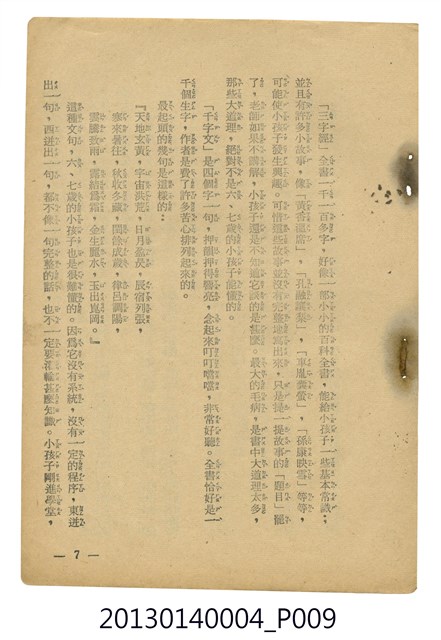 「三字經」全書一千一百多字，好像一部小小的百科全書，能給小孩子一些基本常識；
並且有許多小故事，像「黃香溫席」，「孔融讓梨」，「車胤囊螢」，「孫康映雪」等等，
可能使小孩子發生興趣。可惜這些故事並沒有完整地寫出來，只是提一提故事的「題目」罷
了，老師如果不講解，小孩子還是不知道它談的是甚麼。最大的毛病，是書中大道理太多，
那些大道理，絕對不是六、七歲的小孩子能懂的。
「千字文」是四個字一句，押韻押得響亮，念起來叮叮噹噹，非常好聽。全書恰好是一
千個生字，作者是費了許多苦心排列起來的。
最起頭的幾句是這樣的：
『天地玄黃，宇宙洪荒，日月盈昃，辰宿列張，
寒來暑往，秋收冬藏，閏餘成歲，律呂調陽，
雲騰致雨，露結為霜，金生麗水，玉出崑岡。』
這種文句，六、七歲的小孩子也是很難懂的。因為它沒有系統，沒有一定的程序，東迸
出一句，西迸出一句，都不像一句完整的話，也不一定要灌輸甚麼知識。小孩子剛進學堂，
— 7 —
20130140004_P009